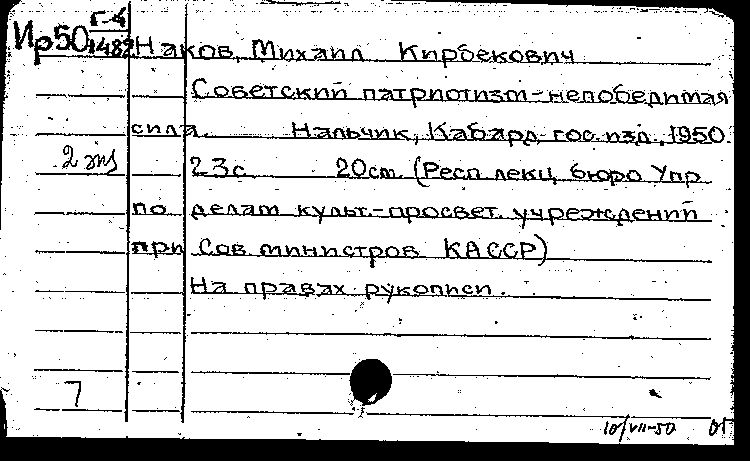 Ир50 Г-4
1482
Наков, Михаил Кирбекович
Советский патриотизм-непобедимая
сила. Нальчик, Кабард. гос. изд., 1950.
2 экз 23с. 20см. (Респ. лекц. бюро Упр
по делам культ.-просвет. учреждений
при Сов. министров КАССР)
На правах рукописи.
7
10/VII-50